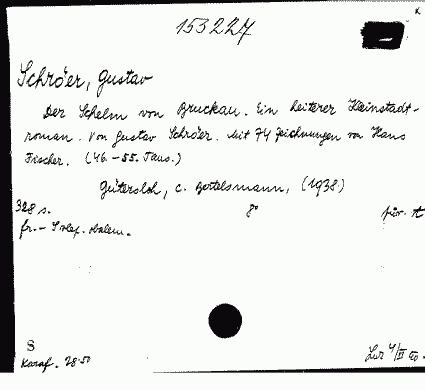 K
153227
Schröer, Gustav
Der Schelm von Bruckau. Ein heiterer Kleinstadt-
roman. Von Gustav Schröer. Mit 74 Zeichnungen von Hans
Fischer. (46.-55. Taus.)
Gütersloh, C. Bertelsmann, (1938)
328 s. 8° 
fr.-
S
28.50